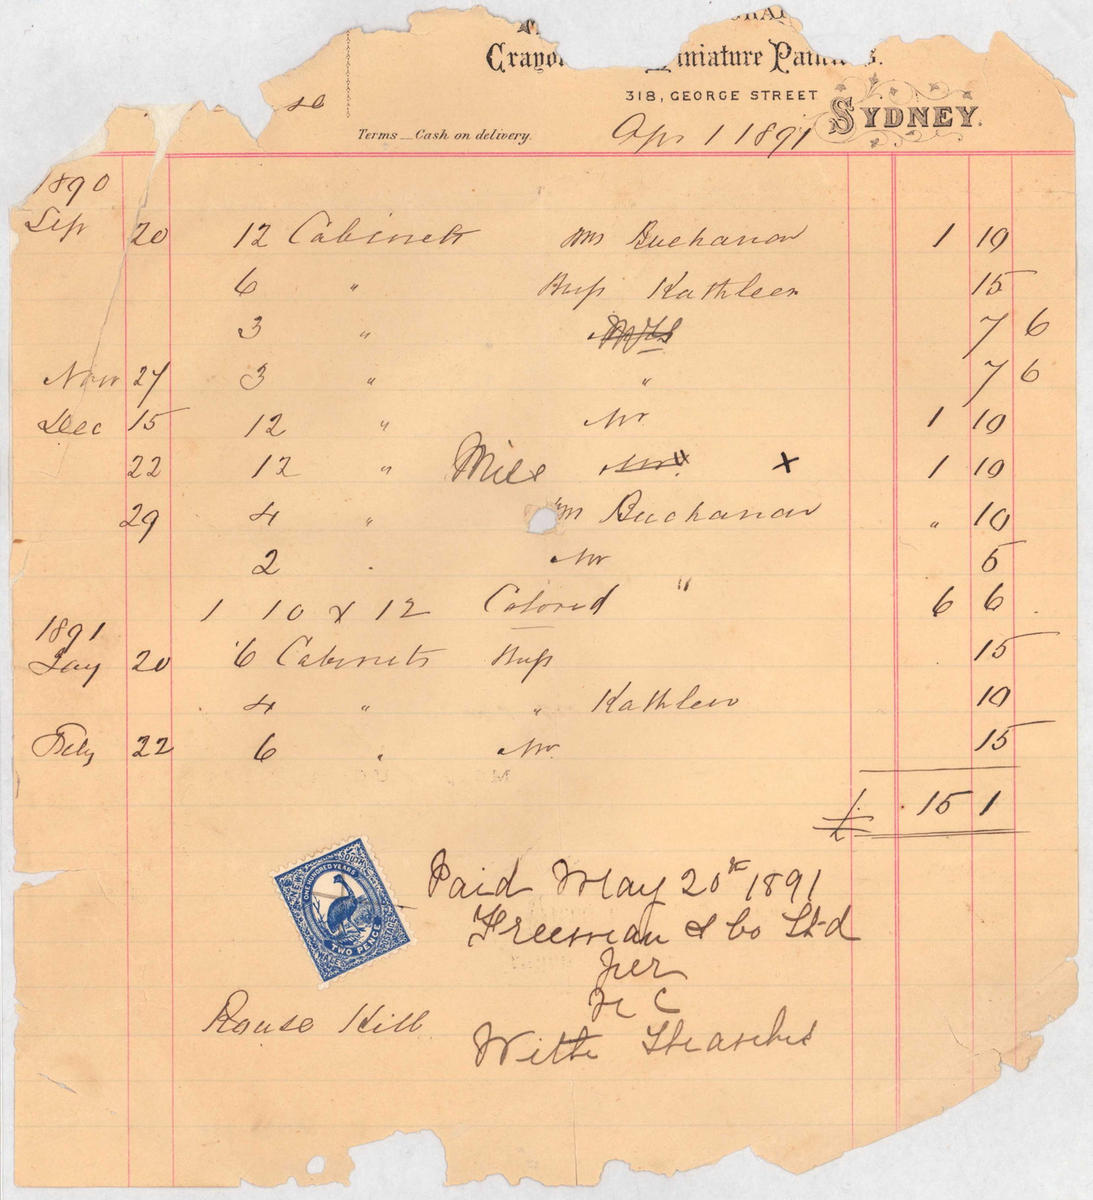 Crayon Miniature Painters.
318, GEORGE STREET SYDNEY.
Terms _ Cash on delivery. Apr 1 1891
1890
Sep 20 12 Cabinets Mrs Buchanan 1 10
6 " Miss Kathleen 15
3 " 7 6
Nov 27 3 " " 7 6
Dec 15 12 " Mr 1 10
22 12 " Miss x 1 10
29 4 " Buchanan " 10
2 . Mr 5
1 10 x 12 Colored " 6 6 .
1891
Jay 20 6 Cabinets Miss 15
4 " " Kathleen 10
Feby 22 6 " Mr 15
£ 15 1
ONE HUNDRED YEARS
SOUTH
WALES
POSTAGE
TWO PENCE
Paid May 20th 1891
Freeman & Co Ltd
per
H C
Rouse Hill
With Thanks